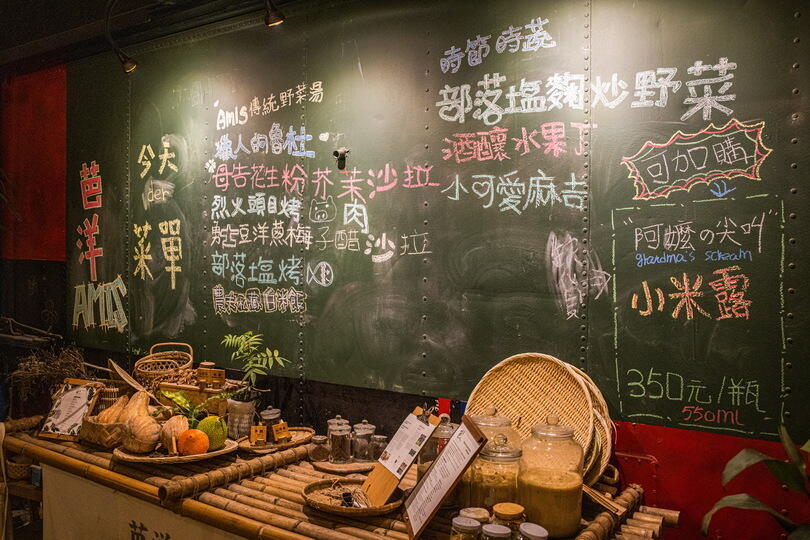 芭洋
AMIS
今天
der
菜單
Amis傳統野菜湯
獵人的魯杜
母告花生粉芥茉沙拉
烈火頭目烤肉
勇士豆洋蔥梅子醋沙拉
部落塩烤
白米飯
時節時蔬
部落塩麴炒野菜
酒釀水果丁
小可愛麻吉
可加購
"阿嬤の尖叫"
grandma's scream
小米露
350元/瓶
550ml